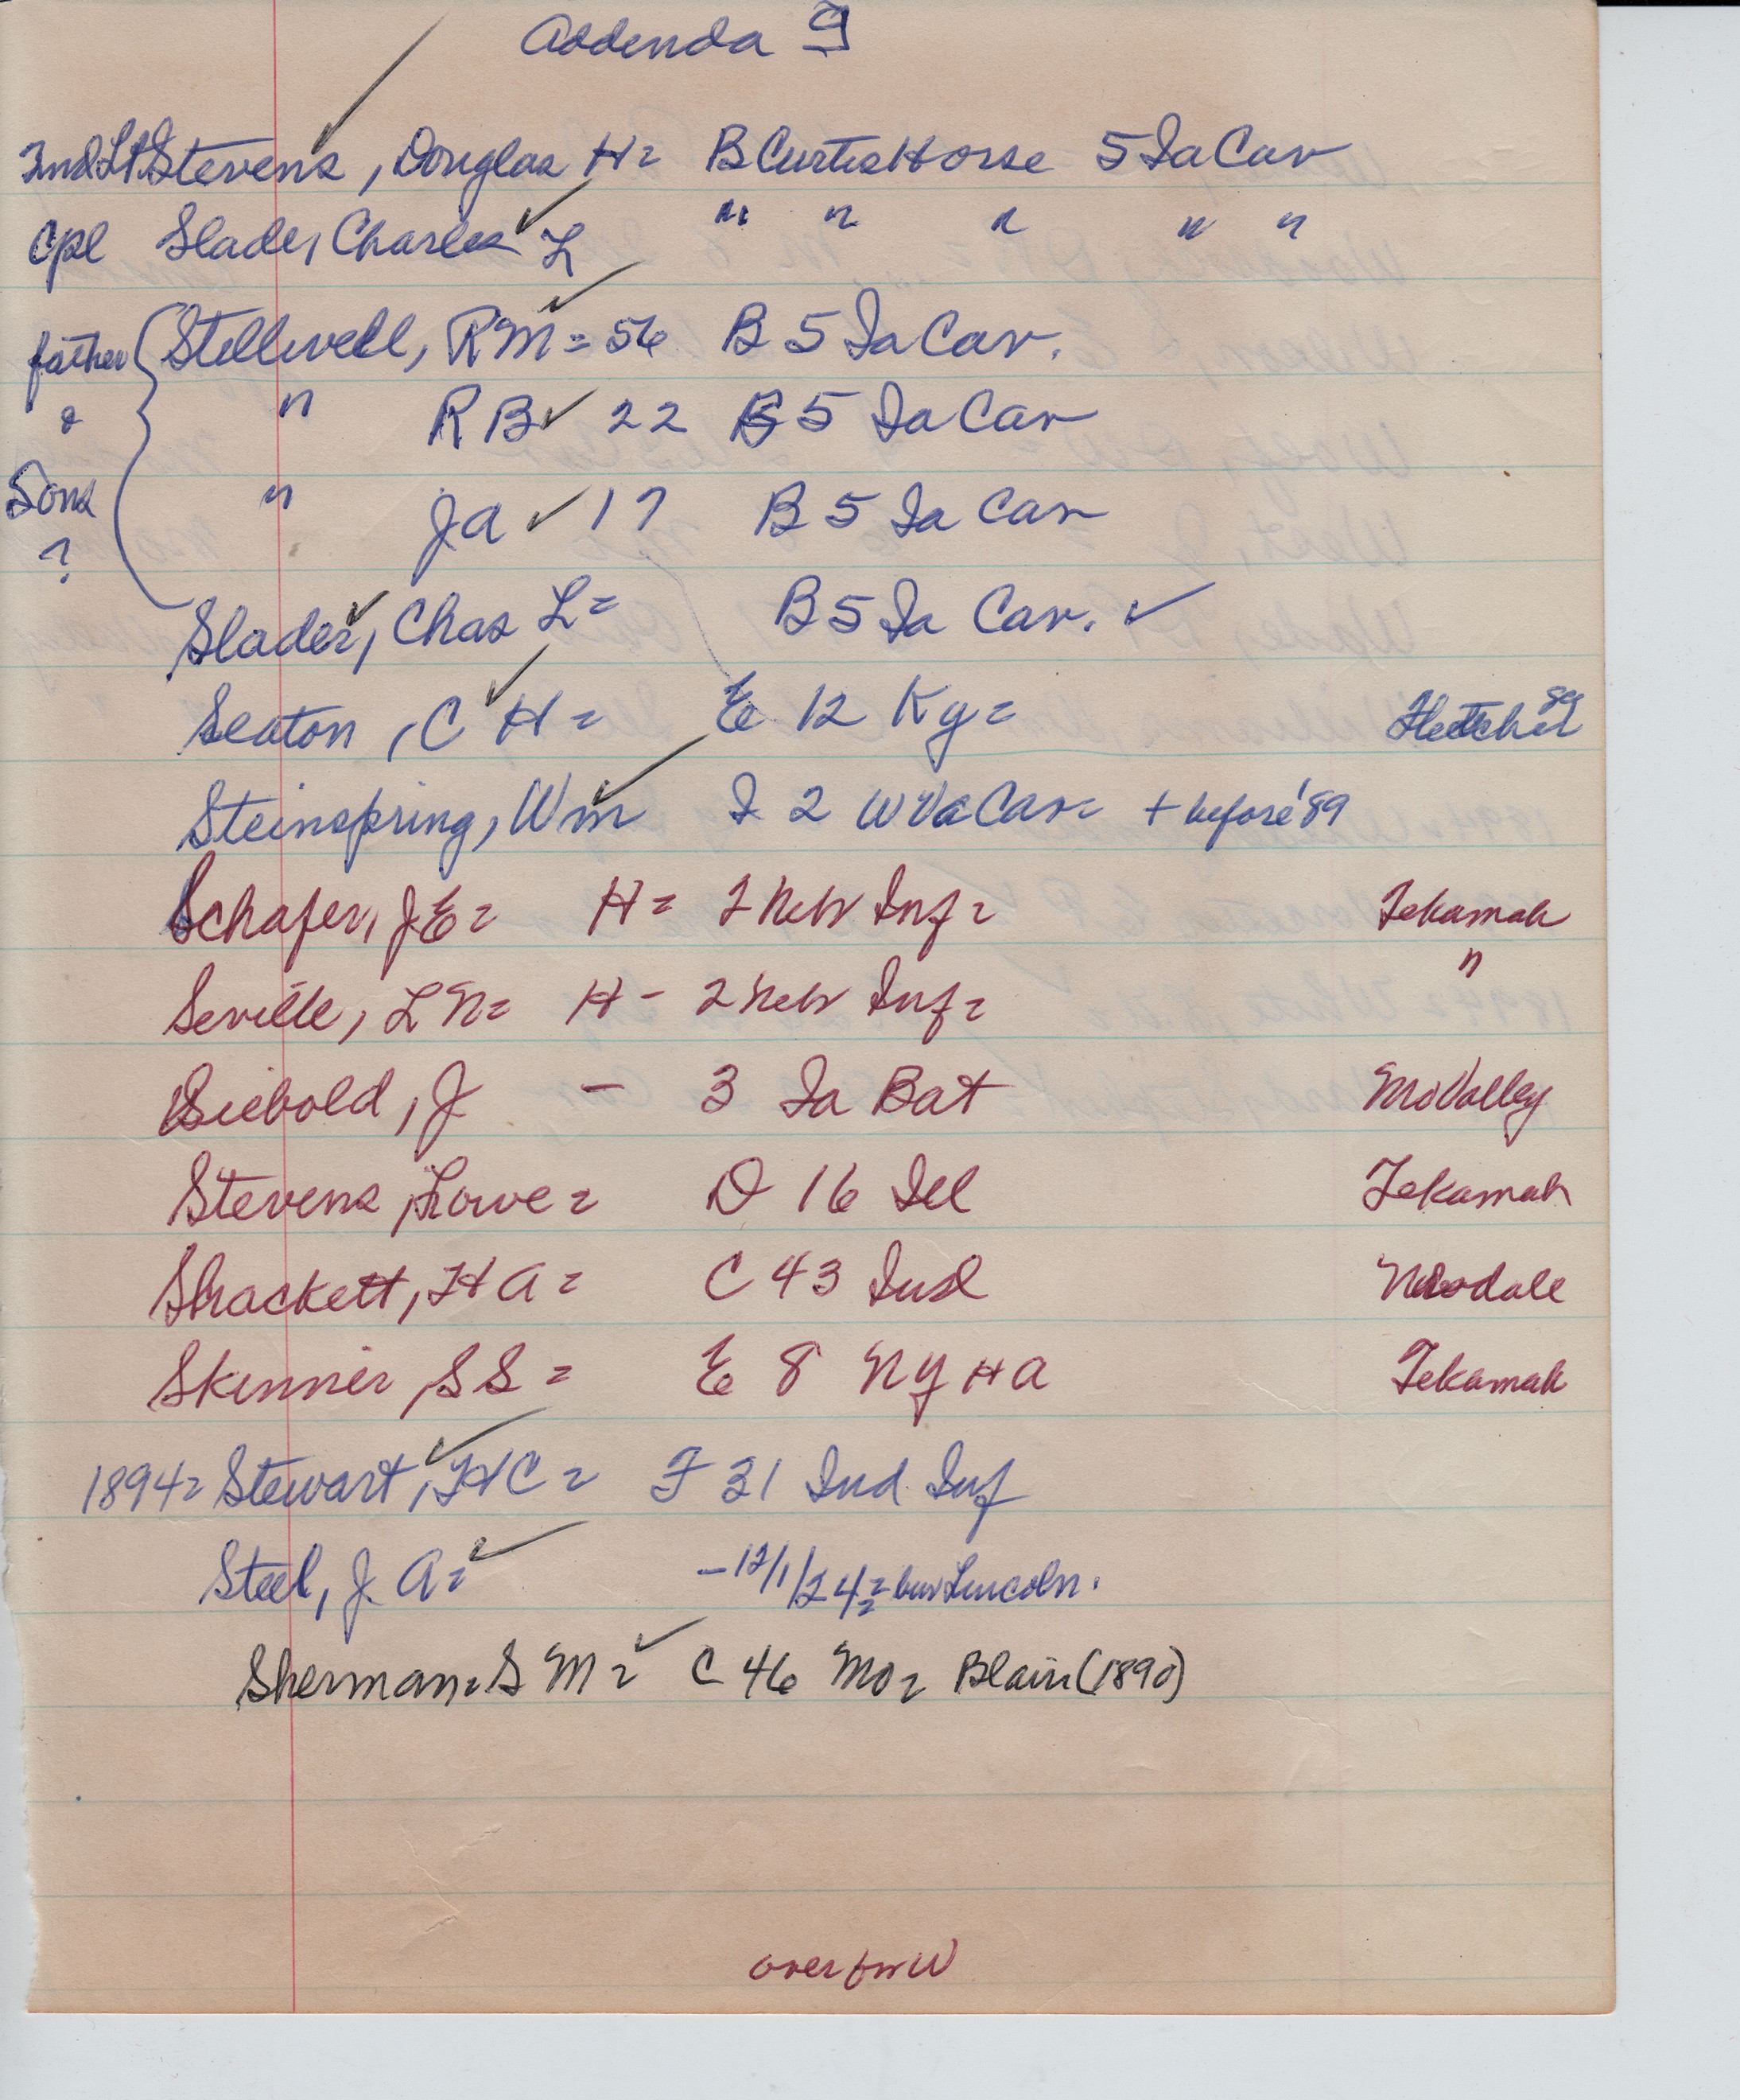 Addenda 9
2nd Lt. Stevens, Douglas H= B Curtis Horse 5 Ia Cav
Cpl Slader, Charles L " " " " "
father { Stillwell, RM = 56 B 5 Ia Cav.
& " RB ✓ 22 B 5 Ia Cav
Sons " JA ✓ 17 B 5 Ia Cav
?
Slader, Chas L= B 5 Ia Cav. ✓
Seaton, C H = E 12 Ky= Fletcher 89
Steinspring, Wm I 2 W Va Cav= + before '89
Schafer, JE= H= 2 Neb Inf= Tekamah
Seville, L N= H- 2 Neb Inf= "
Siebold, J - 3 Ia Bat Mo Valley
Stevens, Lowe= D 16 Ill Tekamah
Shackett, HA= C 43 Ind
Skinner, SS= E 8 NY HA Tekamah
1894= Stewart, HC= F 31 Ind Inf
Steel, J. A= -12/1/24= bur Lincoln.
Sherman= S M= C 46 Mo= Blair (1890)
over for W